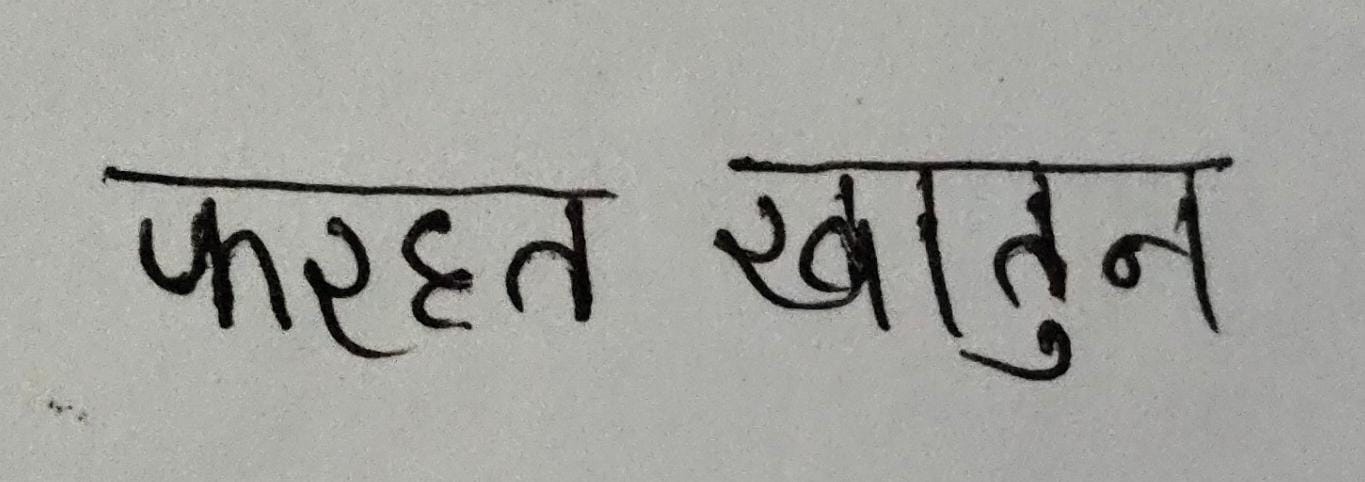 फरहत खातुन